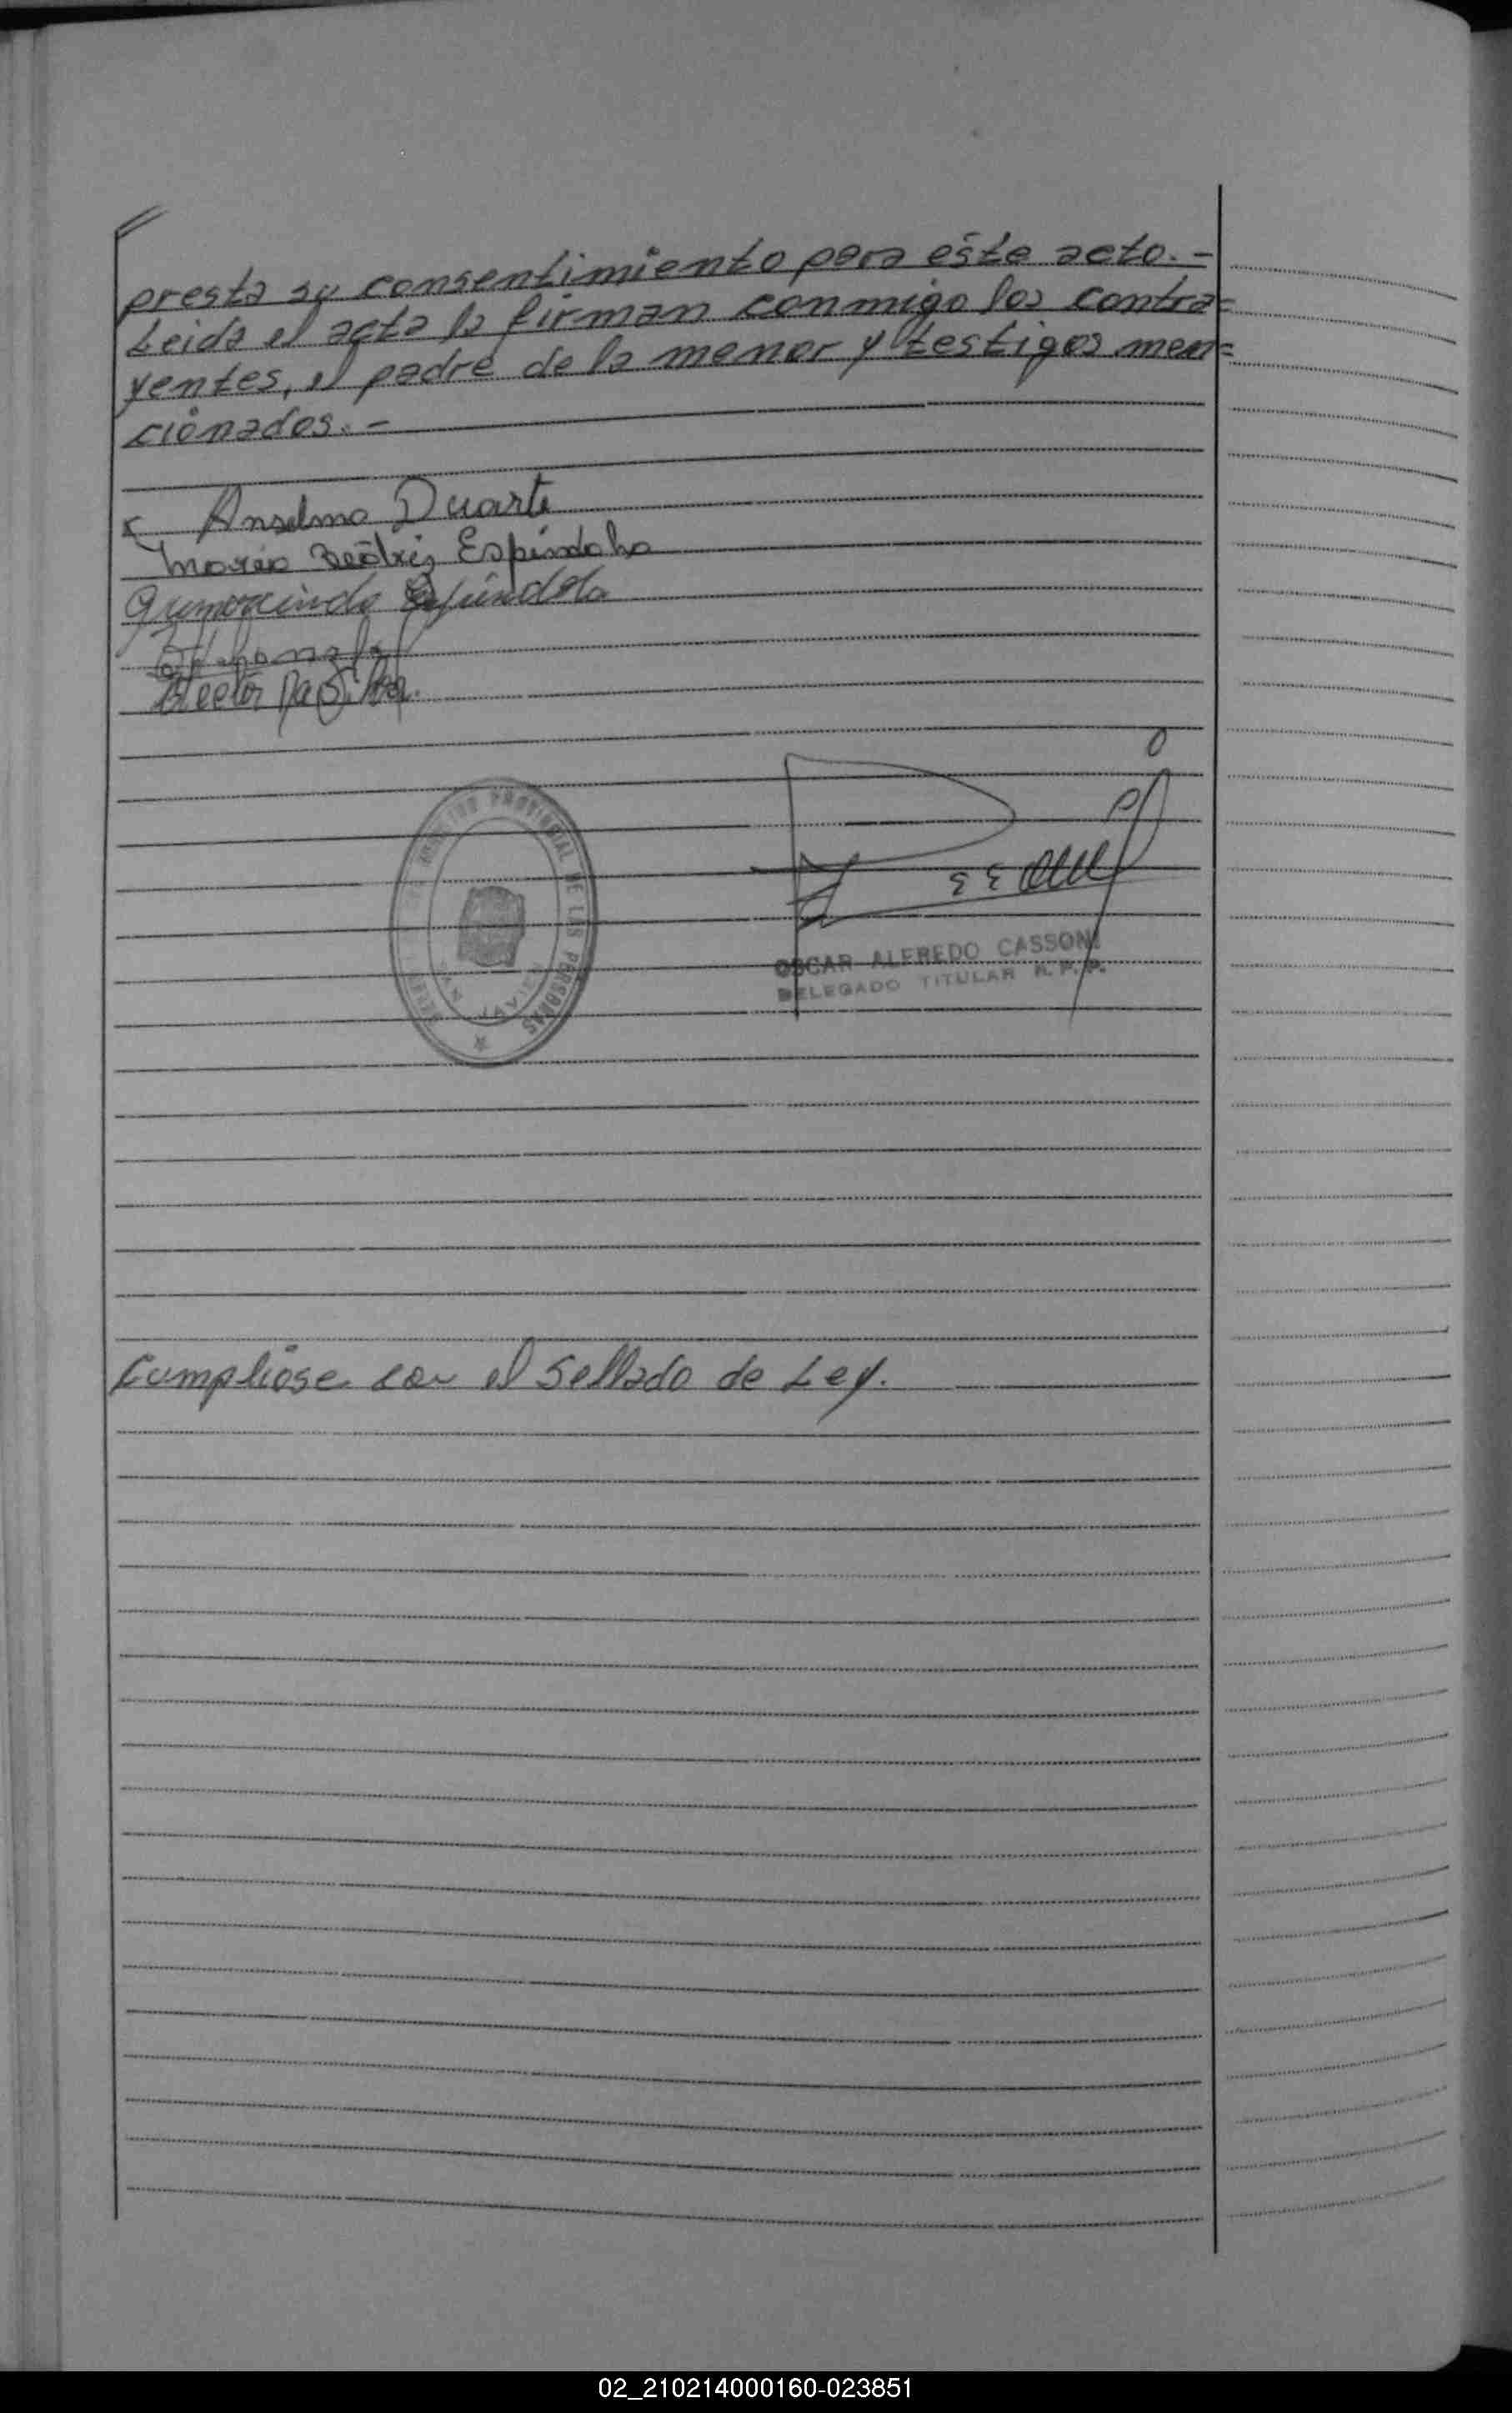 presta su consentimiento para éste acto.-
Leida el acta la firman conmigo los contra=
yentes, el padre de la menor y testigos men=
cionados.-
Anselmo Duarte
Maria Beatriz Espindola
Gumercindo Espindola
Hector Da Silva
REGISTRO PROVINCIAL DE LAS PERSONAS
SAN JAVIER
OSCAR ALFREDO CASSONI
DELEGADO TITULAR R. P. P.
Cumplióse con el Sellado de Ley.
02_210214000160-023851